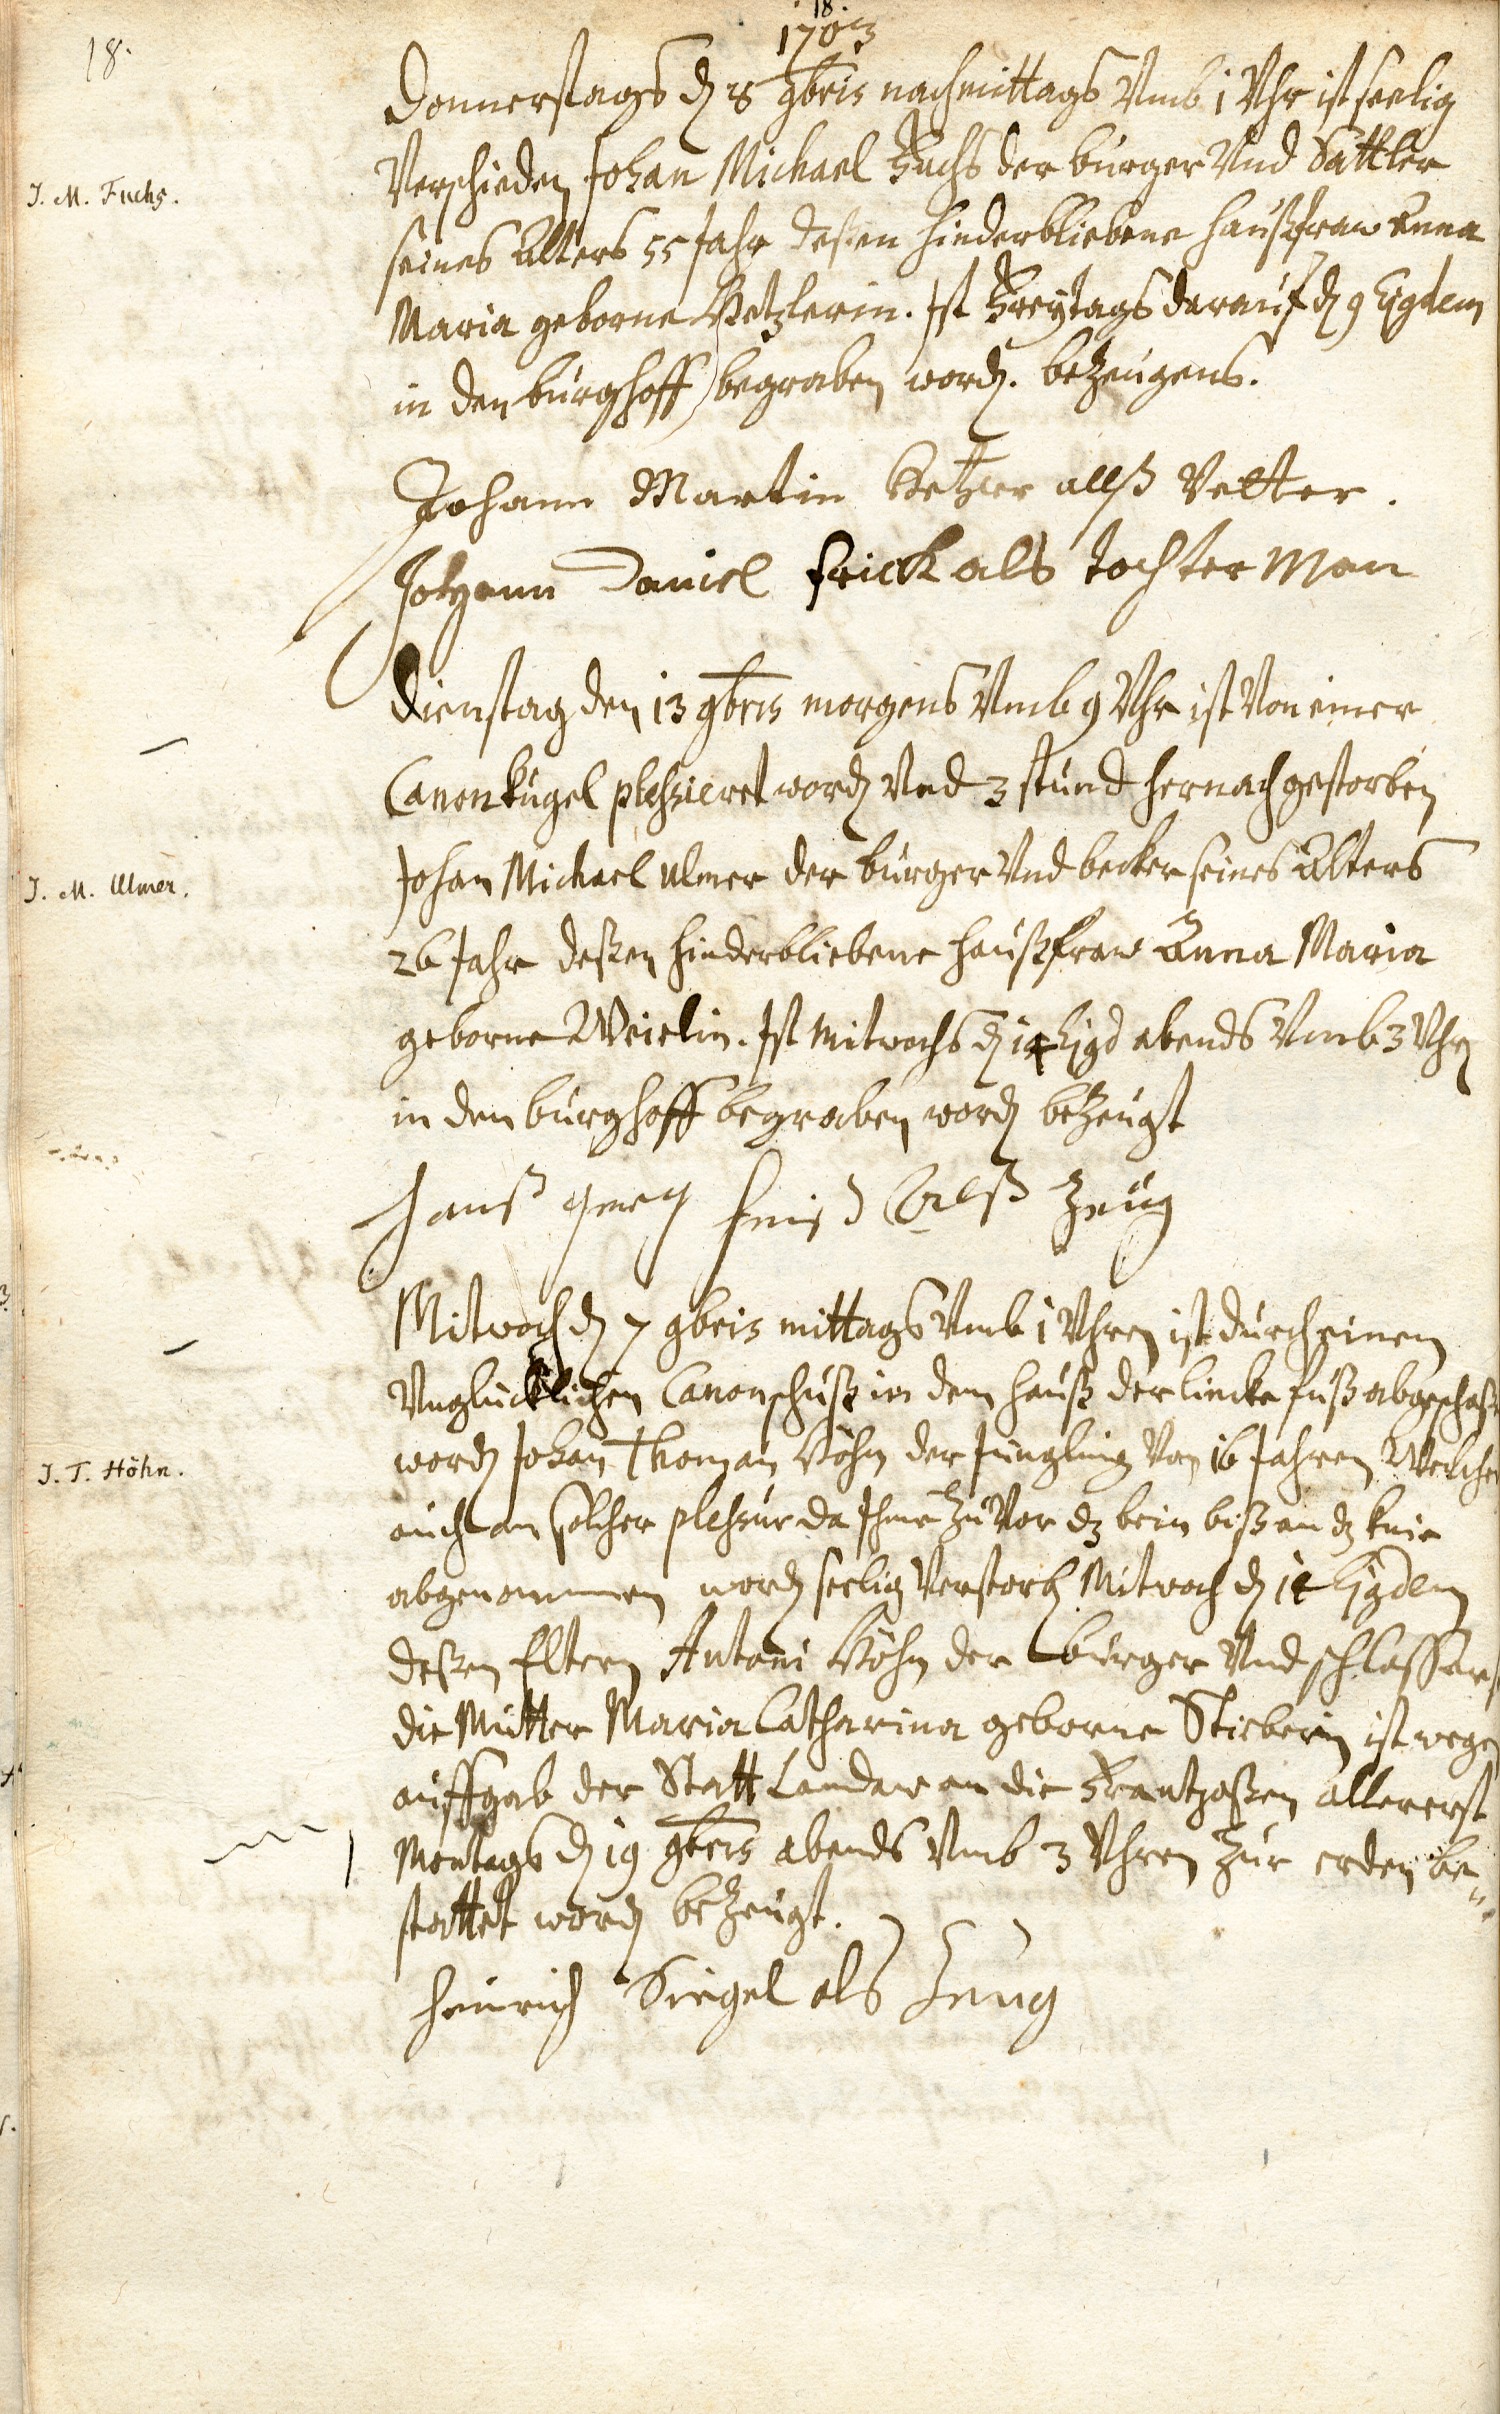 18.
18.
1703
Donnerstags d. 8 9bris nachmittags Vmb 1 Vhr ist seelig
Verschieden Johan Michael Fuchs der burger Vnd Sattler
J. M. Fuchs.
seines Alters 55 Jahr deßen hinderbliebene haußfraw Anna
Maria geborne Ketzlerin. Ist Freytags darauf d. 9 Ejgdem
in den burghoff begraben word. beZeugens.
Johann Martin alß Vetter.
Johann Daniel Frick als tochter Man
Dienstag den 13 9bris morgens Vmb 9 Vhr ist Von einer
Canonkugel plessieret word Vnd 3 stund hernach gestorben
Johan Michael Ulmer der burger Vnd becker seines Alters
J. M. Ulmer.
26 Jahr deßen hinderbliebene haußfraw Anna Maria
geborne Weislin. Ist Mitwochs d. 14 Ejgd abends Vmb 3 Vhr
in den burghoff begraben word beZeugt
Hanß alß Zeug
Mitwoch d. 7 9bris mittags Vmb 1 Vhren ist durch einen
Vnglücklichen Canonschuß in dem hauß der lincke fuß abgeschoß
word Johan Thoman Höhn der Jüngling Von 16 Jahren Welcher
J. T. Höhn.
auch an solcher plessur da Ihme zuVor dz bein biß an dz knie
abgenommen word seelig Verstorb Mitwoch d. 14 Ejgdem
deßen Eltern Antoni Höhn der burger Vnd schlosser
die Mutter Maria Catharina geborne Stieberin ist wegen
auffgab der Statt Landaw an die Frantzoßen allererst
Montags d. 19 9bris abends Vmb 3 Vhren zur erden be-
stattet word beZeugt.
Heinrich Siegel als Zeug